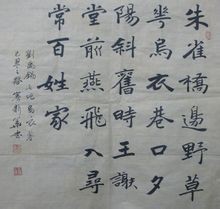 朱雀橋邊野草
華烏衣巷口夕
陽斜舊時王謝
堂前燕飛入尋
常百姓家
劉禹錫 烏衣巷